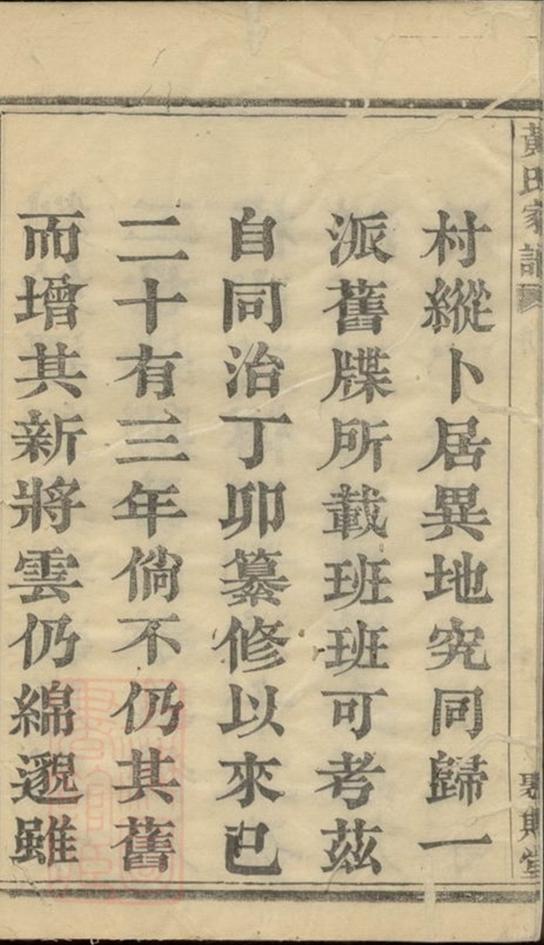 黃氏家譜
村縱卜居異地究同歸一
派舊牒所載班班可考茲
自同治丁卯纂修以來已
二十有三年倘不仍其舊
而增其新將雲仍綿邈雖